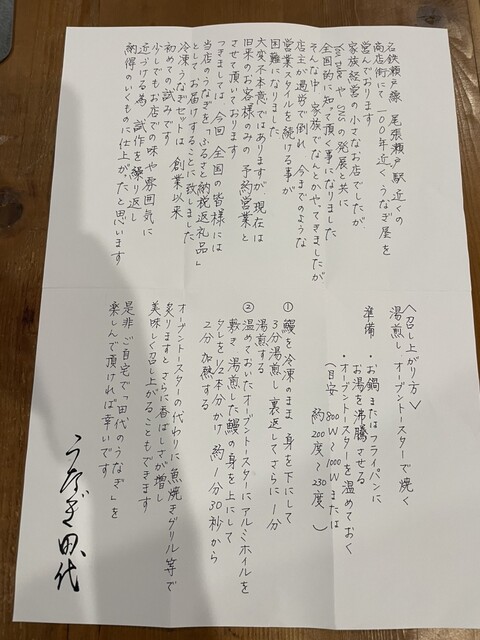 名鉄瀬戸線 尾張瀬戸駅近くの
商店街にて一〇〇年近くうなぎ屋を
営んでおります
家族経営の小さなお店でしたが
SNSの発展と共に
全国的に知って頂く事になりました
そんな中 家族でなんとかやってきましたが
店主が過労で倒れ 今までのような
営業スタイルを続ける事が
困難になりました
大変不本意ではありますが、現在は
旧来のお客様のみの予約営業と
させて頂いております
つきましては、今回 全国の皆様には
当店のうなぎを「ふるさと納税返礼品」
としてお届けすることに致しました
冷凍うなぎセットは 創業以来
初めての試みです
少しでもお店での味や雰囲気に
近づける為 試作を繰り返し
納得のいくものに仕上がたと思います
<召し上がり方>
湯煎し オーブントースターで焼く
準備 ・お鍋またはフライパンに
お湯を沸騰させる
・オーブントースターを温めておく
(目安 800W~1000Wまたは
約200度~230度 )
① 鰻を冷凍のまま 身を下にして
3分湯煎し 裏返してさらに1分
湯煎する
② 温めておいたオーブントースターにアルミホイルを
敷き 湯煎した鰻の身を上にして
タレを1/2本分かけ 約1分30秒から
2分 加熱する
オーブントースターの代わりに 魚焼きグリル等で
炙りますとさらに香ばしさが増し
美味しく召し上がることもできます
是非ご自宅で「田代のうなぎ」を
楽しんで頂ければ幸いです
うなぎ田代